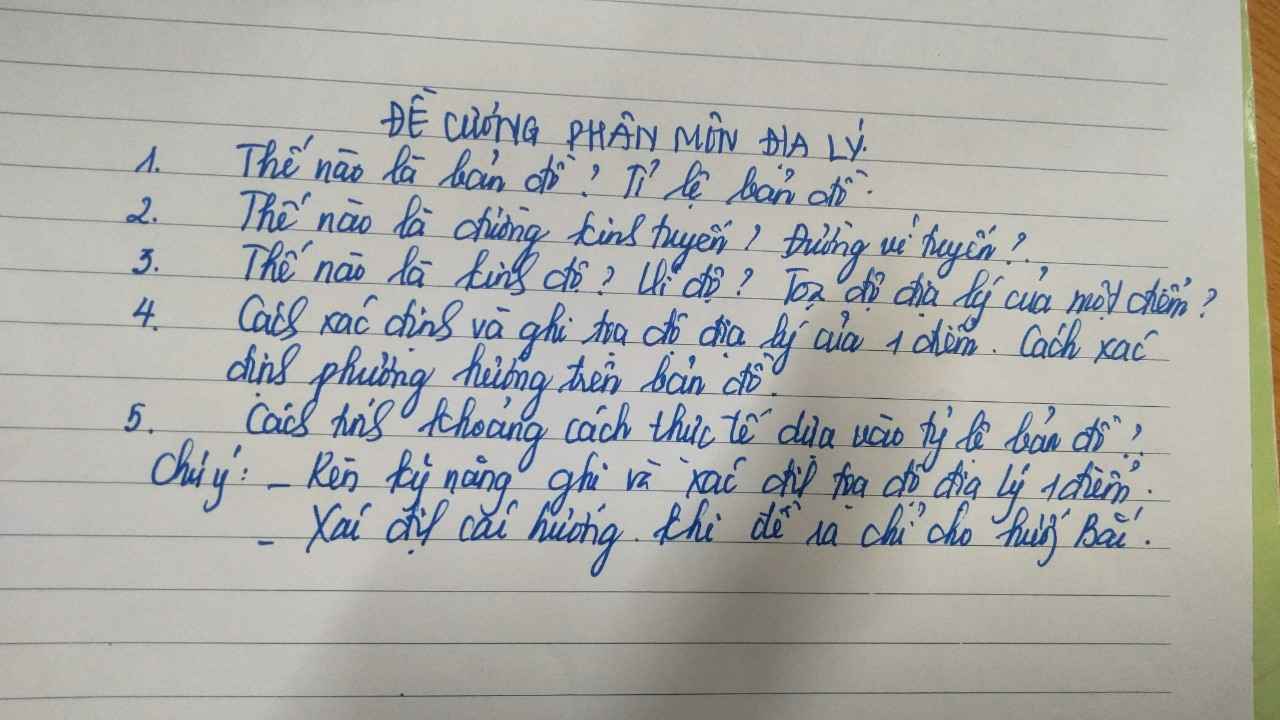 ĐỀ CƯƠNG PHÂN MÔN ĐỊA LÝ.
1. Thế nào là bản đồ? Tỉ lệ bản đồ.
2. Thế nào là đường kinh tuyến? Đường vĩ tuyến?
3. Thế nào là kinh độ? Vĩ độ? Toạ độ địa lý của một điểm?
4. Cách xác định và ghi tọa độ địa lý của 1 điểm. Cách xác
định phương hướng trên bản đồ.
5. Cách tính khoảng cách thực tế dựa vào tỷ lệ bản đồ?
Chú ý: - Rèn kỹ năng ghi và xác định tọa độ địa lý 1 điểm.
- Xác định các hướng. khi đề ra chỉ cho hướng Bắc.